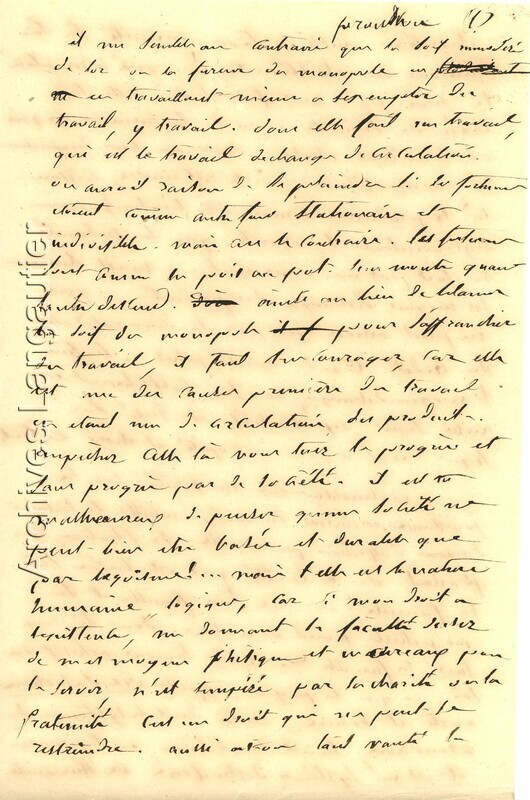 proudhon
il me semble au contraire que la soif immodérée
de l'or ou la fureur du monopole en
en travaillant même a s'exempter du
travail, y travail. donc elle fait un travail,
qui est le travail d'echange de circulation.
on auroit raison de se plaindre si les fortunes
etoient comme autre fois stationaire et
indivisible. mais au contraire. les fortunes
sont comme les pois au pot. l'un monte quand
l'autre descend. ainsi au lieu de blamer
la soif du monopole pour s'affranchir
du travail, il faut l'encourager, car elle
est une des causes première du travail
en etant une de circulation des produits.
empêchez cella là vous tuez le progrès et
sans progrès pas de société. il est
malheureux de penser qu'une société ne
peut bien etre basée et durable que
par l'egoisme!... mais telle est la nature
humaine, logique, car si mon droit a
l'existence, me donnant la faculté d'user
de mes moyens phisique et moreaux pour
la servir n'est tempéré par la charité ou la
fraternité c'est un droit qui ne peut se
restreindre. aussi a-t-on tant vanté la
Archives Langautier